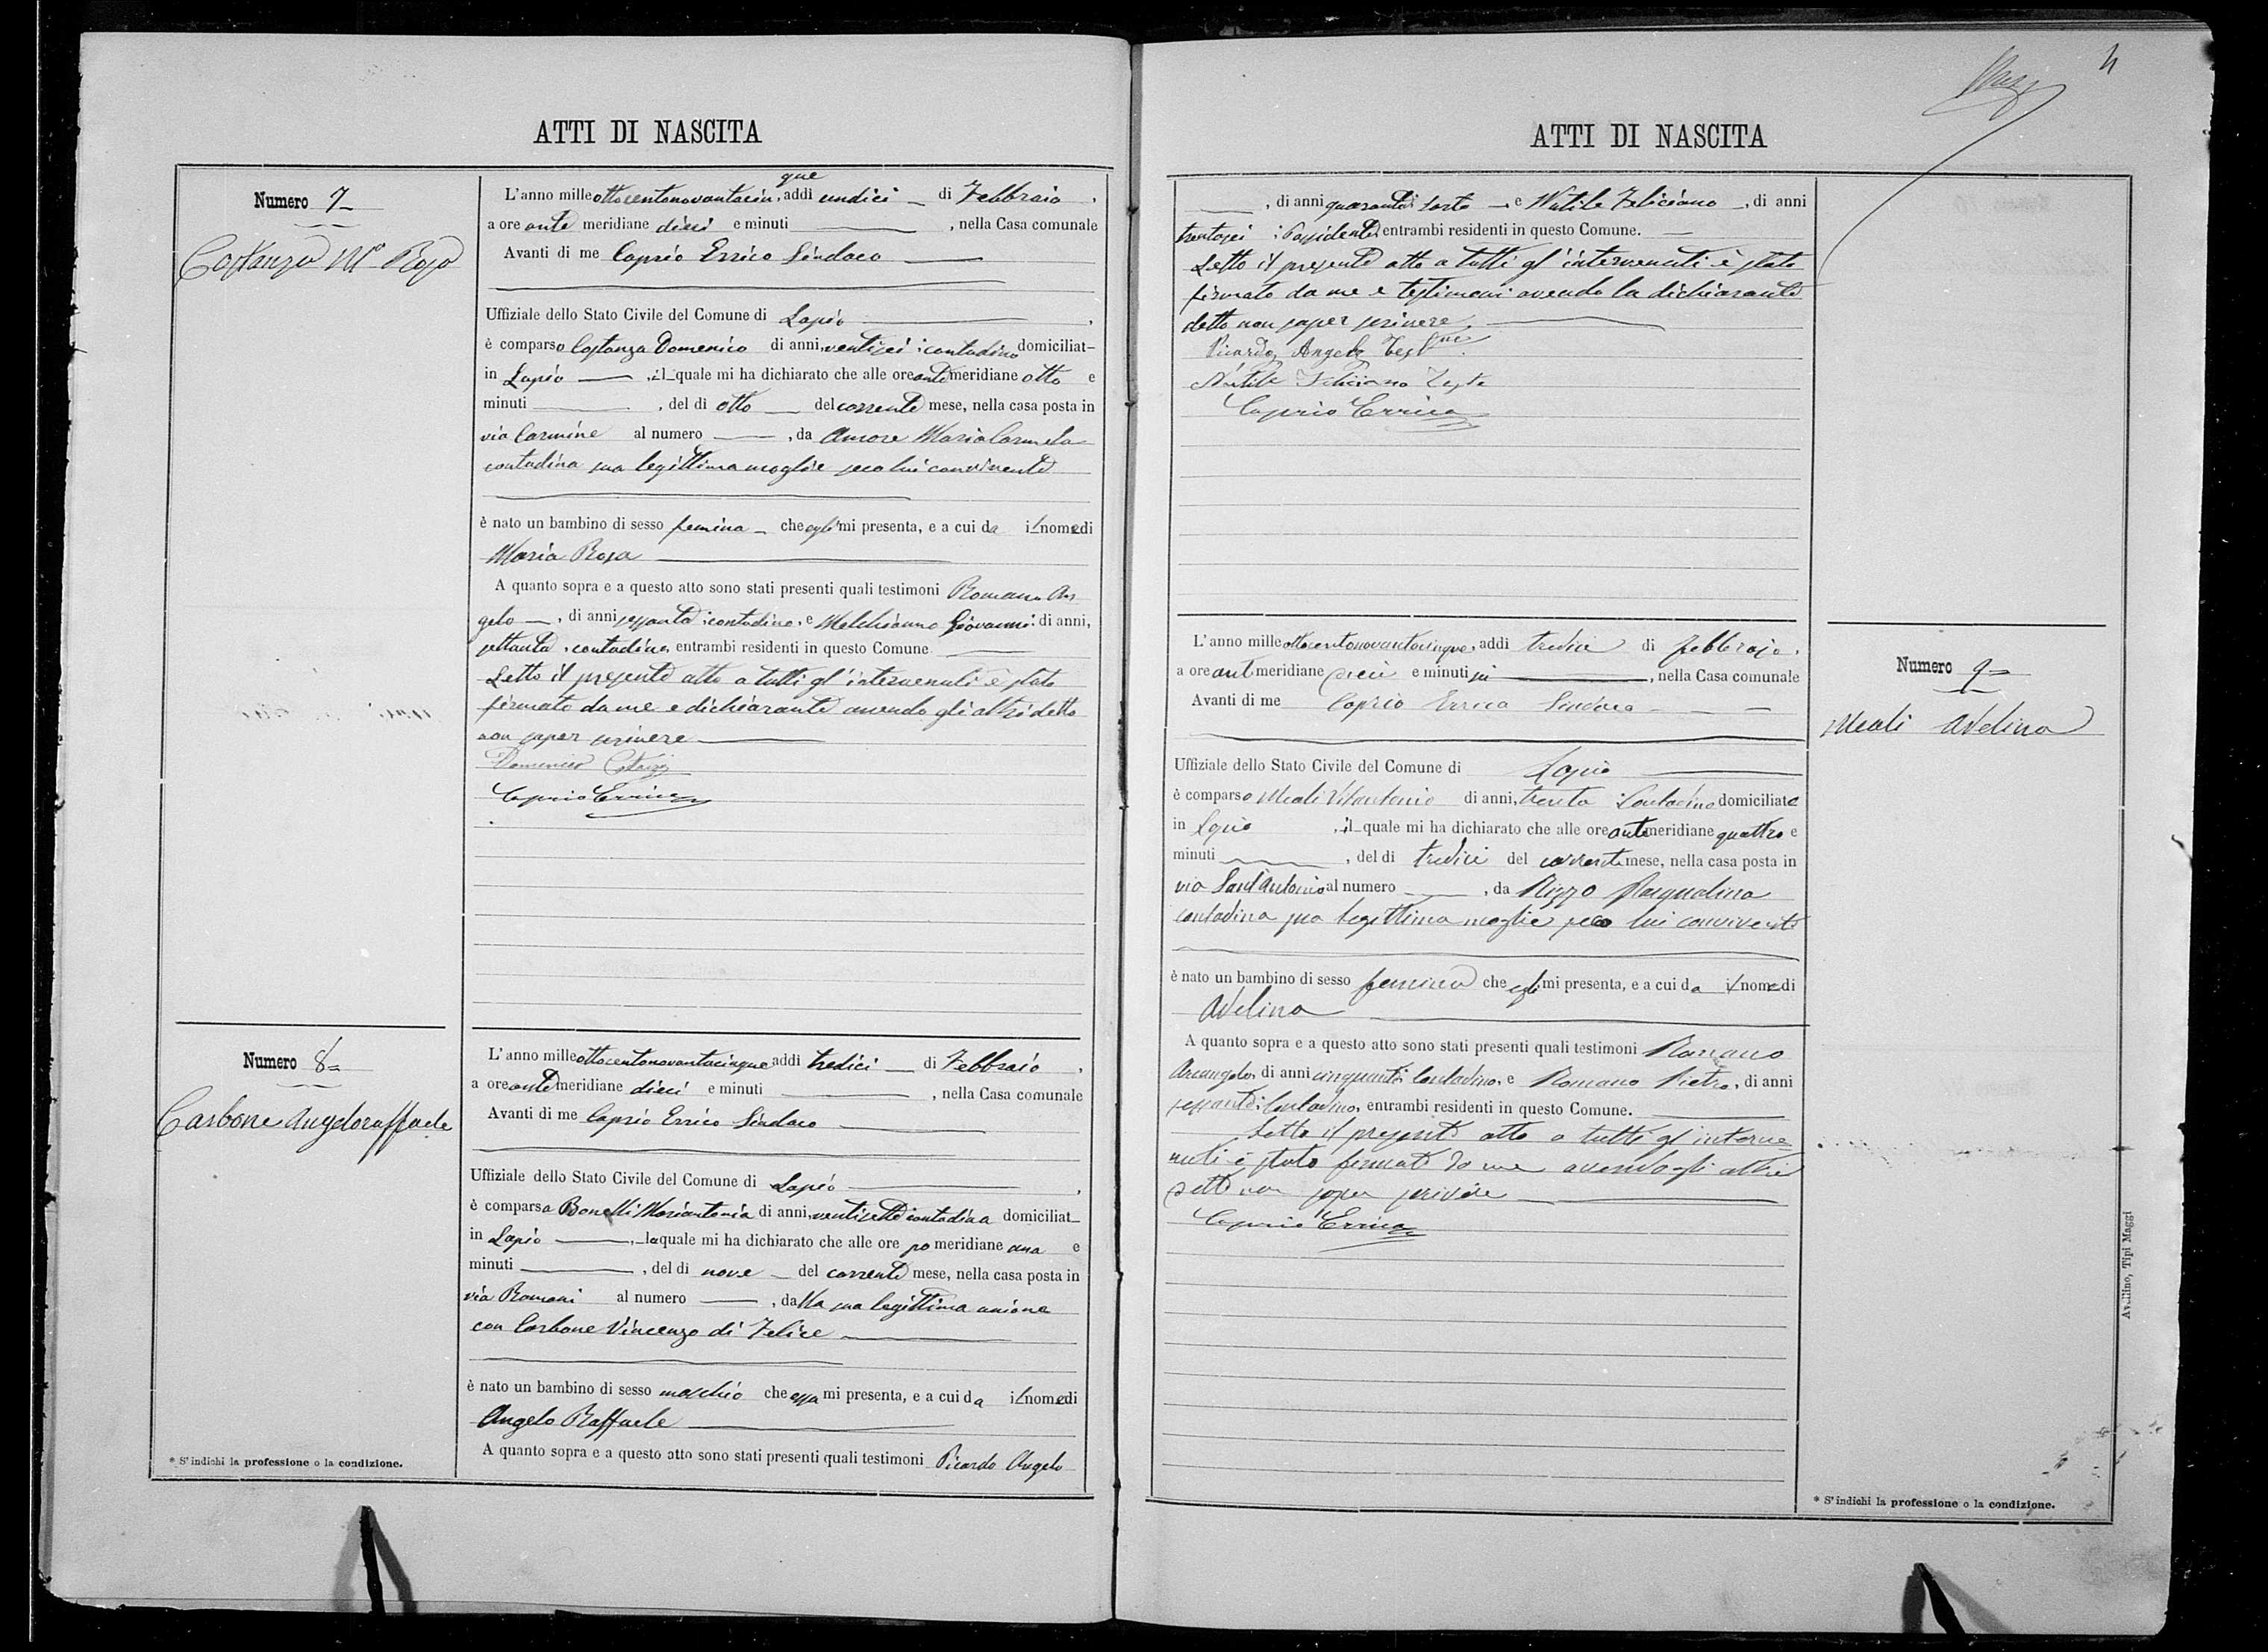 ATTI DI NASCITA
Numero 7
Costanza Mª Rosa
que
L'anno mille ottocentonovantacin, addì undici di Febbraio,
a ore ante meridiane dieci e minuti , nella Casa comunale
Avanti di me Caprio Errico Sindaco
Uffiziale dello Stato Civile del Comune di Lapio ,
è comparso Costanza Domenico di anni, ventisei contadino domiciliat
in Lapio , il quale mi ha dichiarato che alle ore ante meridiane otto e
minuti , del dì otto del corrente mese, nella casa posta in
via Carmine al numero , da Amore Maria Carmela
contadina sua legittima moglie seco lui convivente
è nato un bambino di sesso femina che egli mi presenta, e a cui da il nome di
Maria Rosa
A quanto sopra e a questo atto sono stati presenti quali testimoni Romano An
gelo , di anni sessanta contadino, e Melchionno Giovanni di anni,
settanta, contadino, entrambi residenti in questo Comune
Letto il presente atto a tutti gl'intervenuti è stato
firmato da me e dichiarante avendo gli altri detto
non saper scrivere
Domenico
Caprio Errico
Numero 8
Carbone Angeloraffaele
L'anno mille ottocentonovantacinque addì tredici di Febbraio ,
a ore ante meridiane dieci e minuti , nella Casa comunale
Avanti di me Caprio Errico Sindaco
Uffiziale dello Stato Civile del Comune di Lapio ,
è comparsa Bonelli Mariantonia di anni, ventisette contadina domiciliat
in Lapio , la quale mi ha dichiarato che alle ore po meridiane una e
minuti , del dì nove del corrente mese, nella casa posta in
via Romani al numero , dalla sua legittima unione
con Carbone Vincenzo di Felice
è nato un bambino di sesso maschio che essa mi presenta, e a cui da il nome di
Angelo Raffaele
A quanto sopra e a questo atto sono stati presenti quali testimoni Picardo Angelo
* S'indichi la professione o la condizione.
4
ATTI DI NASCITA
, di anni quaranta sarto , e Nutile Feliciano , di anni
trentasei Possidente, entrambi residenti in questo Comune.
Letto il presente atto a tutti gl'intervenuti è stato
firmato da me e testimoni avendo la dichiarante
detto non saper scrivere
Picardo Angelo
Nutile Feliciano Teste
Caprio Errico
Numero 9
Meoli Adelina
L'anno mille ottocentonovantacinque, addì tredici di febbraio,
a ore ant meridiane dieci e minuti , nella Casa comunale
Avanti di me Caprio Errico Sindaco
Uffiziale dello Stato Civile del Comune di Lapio
è comparso Meoli Vitantonio di anni, trenta Contadino domiciliato
in Lapio , il quale mi ha dichiarato che alle ore antemeridiane quattro e
minuti , del dì tredici del corrente mese, nella casa posta in
via Sant'Antonio al numero , da Rizzo Pasqualina
contadina sua legittima moglie seco lui convivente
è nato un bambino di sesso femina che egli mi presenta, e a cui da il nome di
Adelina
A quanto sopra e a questo atto sono stati presenti quali testimoni Romano
Arcangelo, di anni cinquanta Contadino, e Romano Pietro, di anni
sessanta Contadino, entrambi residenti in questo Comune.
Letto il presente atto a tutti gl'interve=
nuti è stato firmato da me avendo gli altri
detto non saper scrivere
Caprio Errico
Avellino, Tipi Maggi
* S'indichi la professione o la condizione.